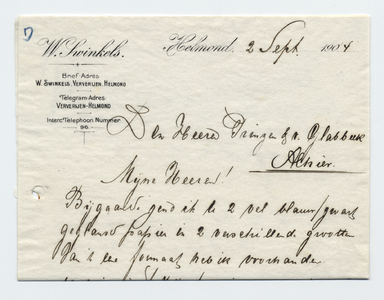 W. Swinkels.
Helmond, 2 Sept. 1904
Brief-Adres
W. SWINKELS, VERVERIJEN, HELMOND
Telegram-Adres
VERVERIJEN-HELMOND
Interc. Telephoon Nummer
96.
Den Heeren & v. Glabbeek
Alhier.
Mijne Heeren!
Bijgaande zend ik U 2 vel blauw/zwart
papier in 2 verschillende grootten
formaat voorhanden